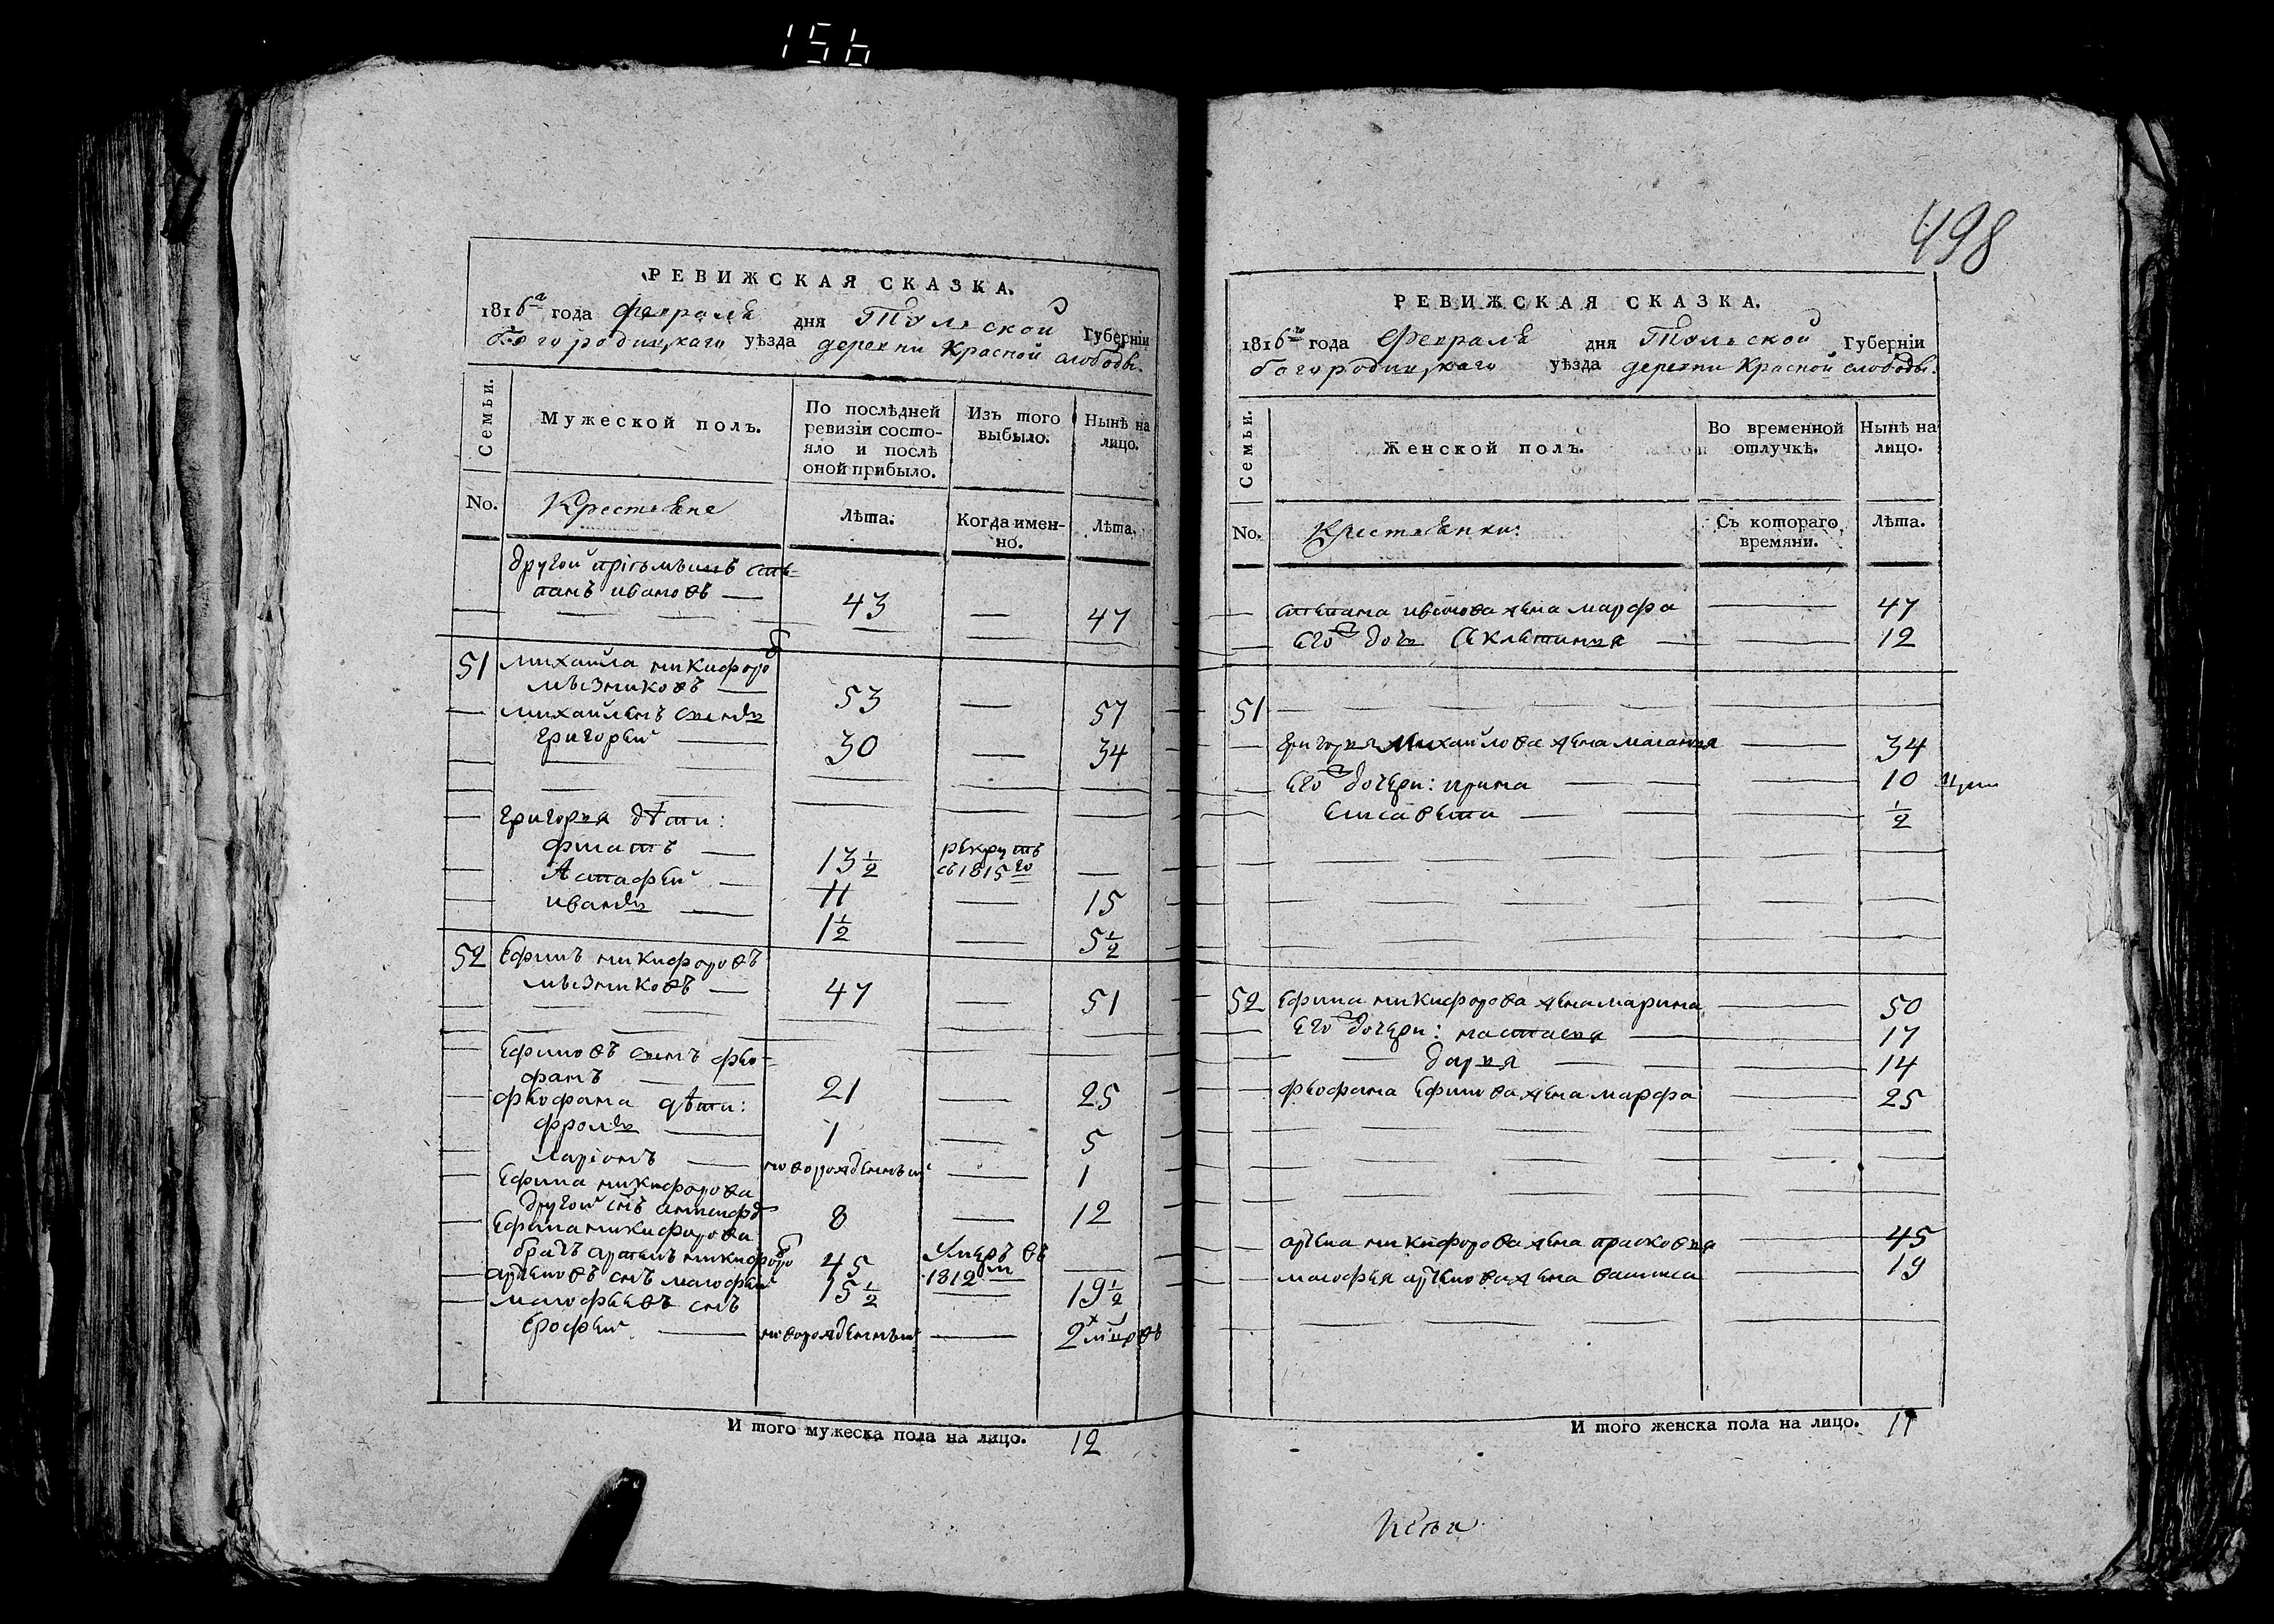 156
РЕВИЖСКАЯ СКАЗКА.
1816го года Февраля дня Тульской Губерніи
Богородицкаго уѣзда деревни Красной слободы.
Семьи.
Мужеской полъ.
По послѣдней ревизіи состо-
яло и послѣ оной прибыло.
Изъ того выбыло.
Нынѣ на лицо.
No.
Крестьяне
Лѣта.
Когда имен-
но.
Лѣта.
другой пріемышъ сте-
панъ ивановъ — 43 — 47
51 михайла никифоро
мызниковъ — 53 — 57
михайлинъ сынъ
григорей — 30 — 34
григорья дѣти:
филатъ — 13 1/2 рекрутъ
съ 1815го —
Астафей — 11 — 15
иванъ — 1 1/2 — 5 1/2
52 Ефимъ никифоровъ
мызниковъ — 47 — 51
Ефимовъ сынъ фео-
фанъ — 21 — 25
феофана дѣти:
фролъ — 1 — 5
ларіонъ — новорожденный — 1
Ефима никифорова
другой снъ 8 — 12
Ефима никифорова
братъ артемъ никифоро 45 Умеръ въ
1812м —
артемовъ снъ малофей 15 1/2 — 19 1/2
малофеевъ снъ
Ерофей — новорожденный — 2х
И того мужеска пола на лицо. 12
498
РЕВИЖСКАЯ СКАЗКА.
1816го года Февраля дня Тульской Губерніи
богородицкаго уѣзда деревни Красной слободы.
Семьи.
Женской полъ.
Во временной отлучкѣ.
Нынѣ на лицо.
No.
Крестьянки:
Съ котораго времяни.
Лѣта.
степана иванова жена марфа — 47
Его дочь Акулина — 12
51
григорья михайлова жена маланья — 34
Его дочери: ирина — 10
Елисавета — 1/2
52 Ефима никифорова жена марина — 50
Его дочери: настасья — 17
дарья — 14
феофана Ефимова жена марфа — 25
артема никифорова жена прасковья — 45
малофея артемова жена василиса — 19
И того женска пола на лицо. 11